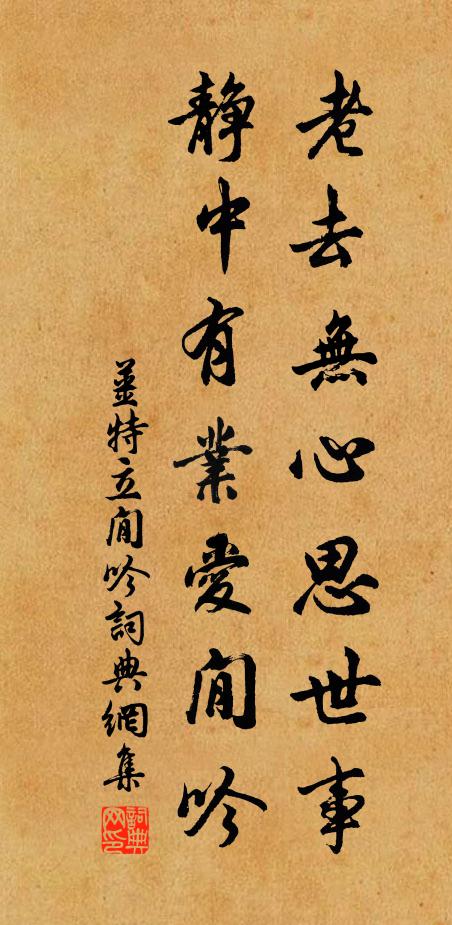 老去無心思世事
靜中有業愛閒吟
姜特立閒吟詞典網集
詞典網印